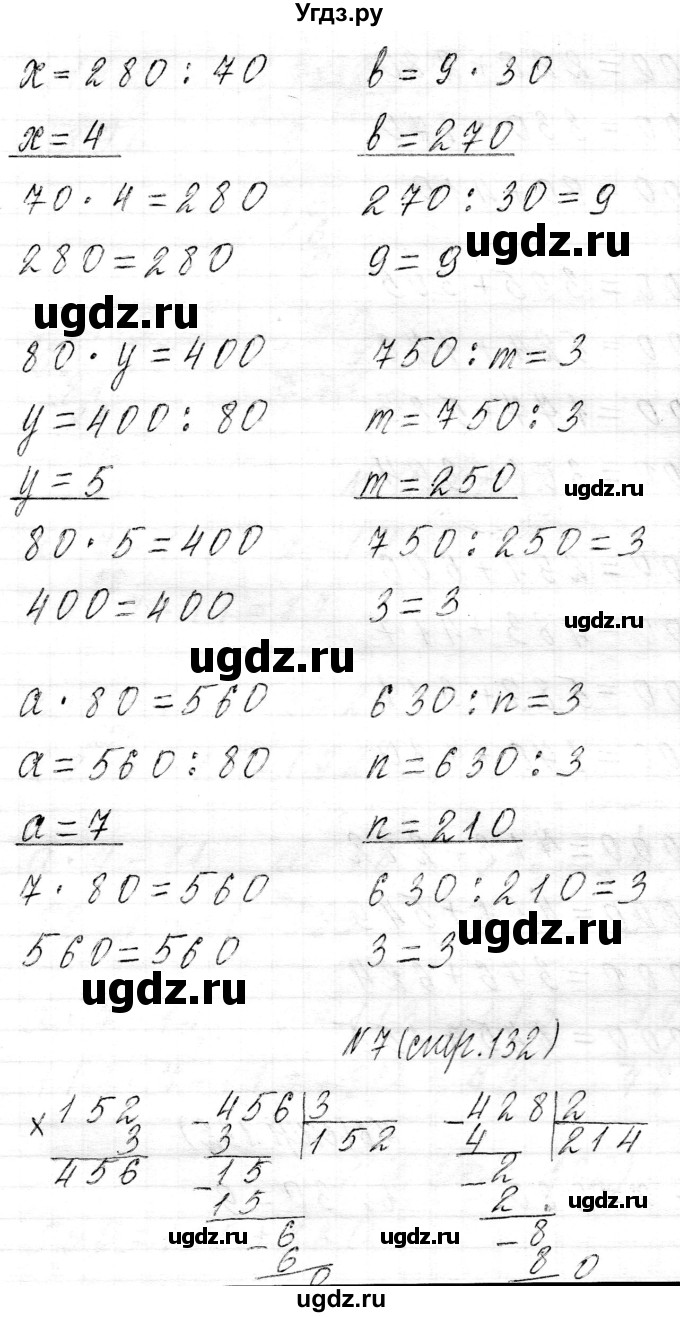 Угдз.ру
x = 280 : 70
x = 4
70 · 4 = 280
280 = 280
ugdz.ru
в = 9 · 30
в = 270
270 : 30 = 9
ugdz.ru
9 = 9
80 · y = 400
y = 400 : 80
y = 5
80 · 5 = 400
400 = 400
ugdz.ru
750 : m = 3
m = 750 : 3
m = 250
ugdz.ru
750 : 250 = 3
3 = 3
ugdz.ru
a · 80 = 560
a = 560 : 80
a = 7
7 · 80 = 560
560 = 560
ugdz.ru
630 : n = 3
n = 630 : 3
n = 210
630 : 210 = 3
ugdz.ru
3 = 3
N7 (стр. 132)
× 152
3
456
- 456 | 3
3 | 152
- 15
15
- 6
6
0
ugdz.ru
- 428 | 2
4 | 214
- 2
2
- 8
8
0
ugdz.ru
ugdz.ru
ugdz.ru